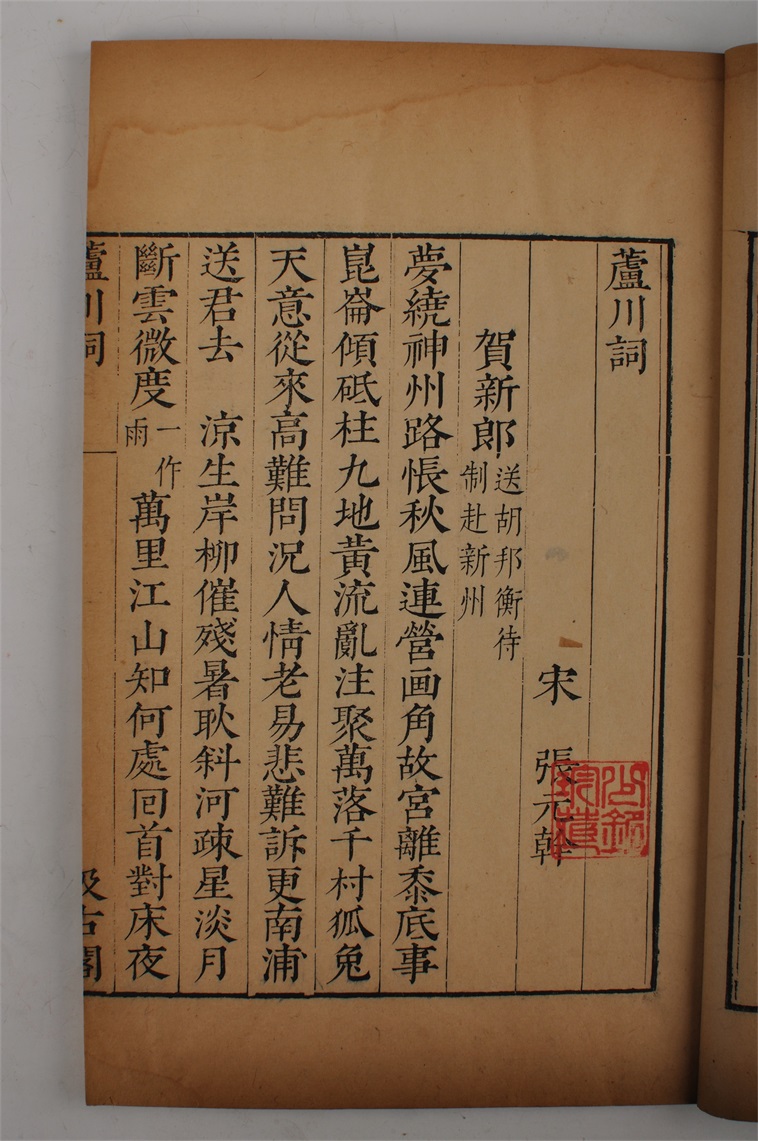 蘆川詞
宋 張元幹
賀新郎 送胡邦衡待制赴新州
夢繞神州路悵秋風連營画角故宮離黍底事
崑崙傾砥柱九地黃流亂注聚萬落千村狐兔
天意從來高難問況人情老易悲難訴更南浦
送君去 涼生岸柳催殘暑耿斜河疎星淡月
斷雲微度一作雨萬里江山知何處囘首對床夜
蘆川詞
汲古閣